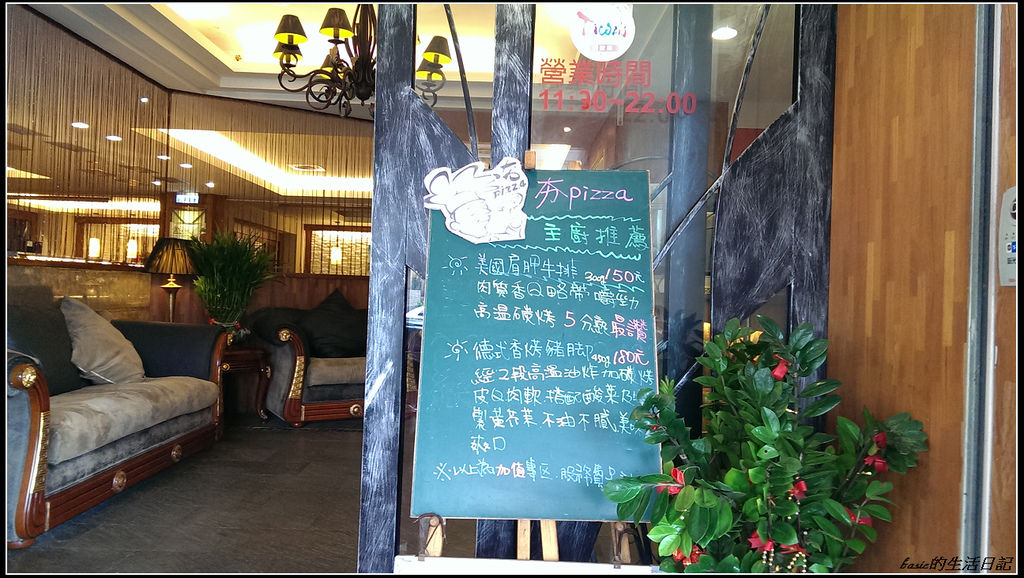 Ticomi
營業時間
11:30-22:00
夯
pizza
夯pizza
主廚推薦
美國肩胛牛排 300g 150元
肉質香Q略帶嚼勁
高溫碳烤 5分熟最讚
德式香烤豬腳 450g 180元
經2段高溫油炸加碳烤
皮Q肉軟 搭配酸菜及
製黃芥茉 不油不膩 美
爽口
※以上為加值專區.服務費
basic的生活日記